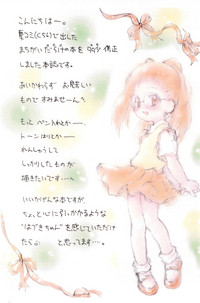 こんにちはー。
夏コミ(C56)で出した
まちがいだらけの本を 修正
しました本誌です。
あいかわらず お見苦しい
もので すみません
もっと ペン入れとか…、
トーンはりとか…
れんしゅうして
しっかりしたものが
描きたいです…。
いいかげんな本ですが、
ちょっと心に引っかかるような
"はづきちゃん"を感じていただけ
たら と思ってます…。